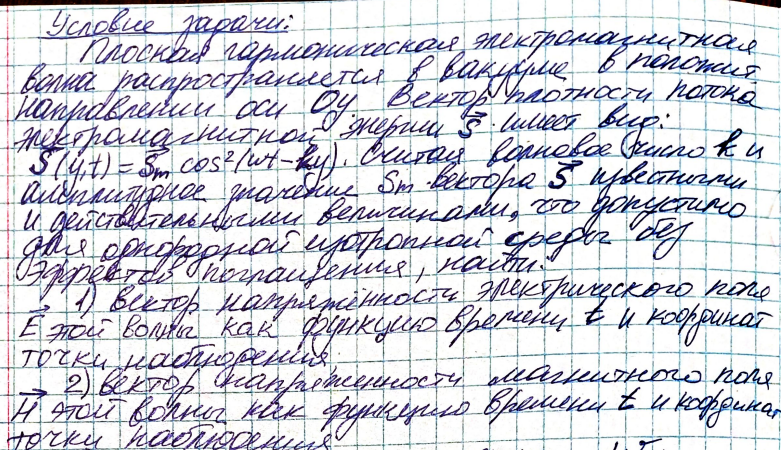 Условие задачи:
Плоская гармоническая электромагнитная
волна распространяется в вакууме в положит
направлении оси Oy Вектор плотности потока
электромагнитной энергии S⃗ имеет вид:
S⃗(y,t) = S⃗m cos²(ωt - ky). Считая волновое число k и
амплитудное значение Sm вектора S⃗ известными
и действительными величинами, что допустимо
для однородной изотропной среды без
эффектов поглащения, найти:
1) вектор напряжённости электрического поля
E⃗ этой волны как функцию времени t и координат
точки наблюдения
2) вектор напряженности магнитного поля
H⃗ этой волны как функцию времени t и координат
точки наблюдения